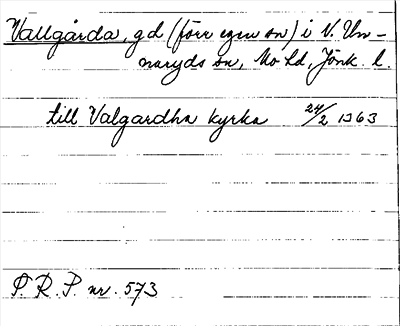 Vallgårda, gd (förr egen sn) i V. Un-
naryds sn, Mo hd, Jönk. l.
till Valgardha kyrka 24/2 1363
P. R. P. nr. 573